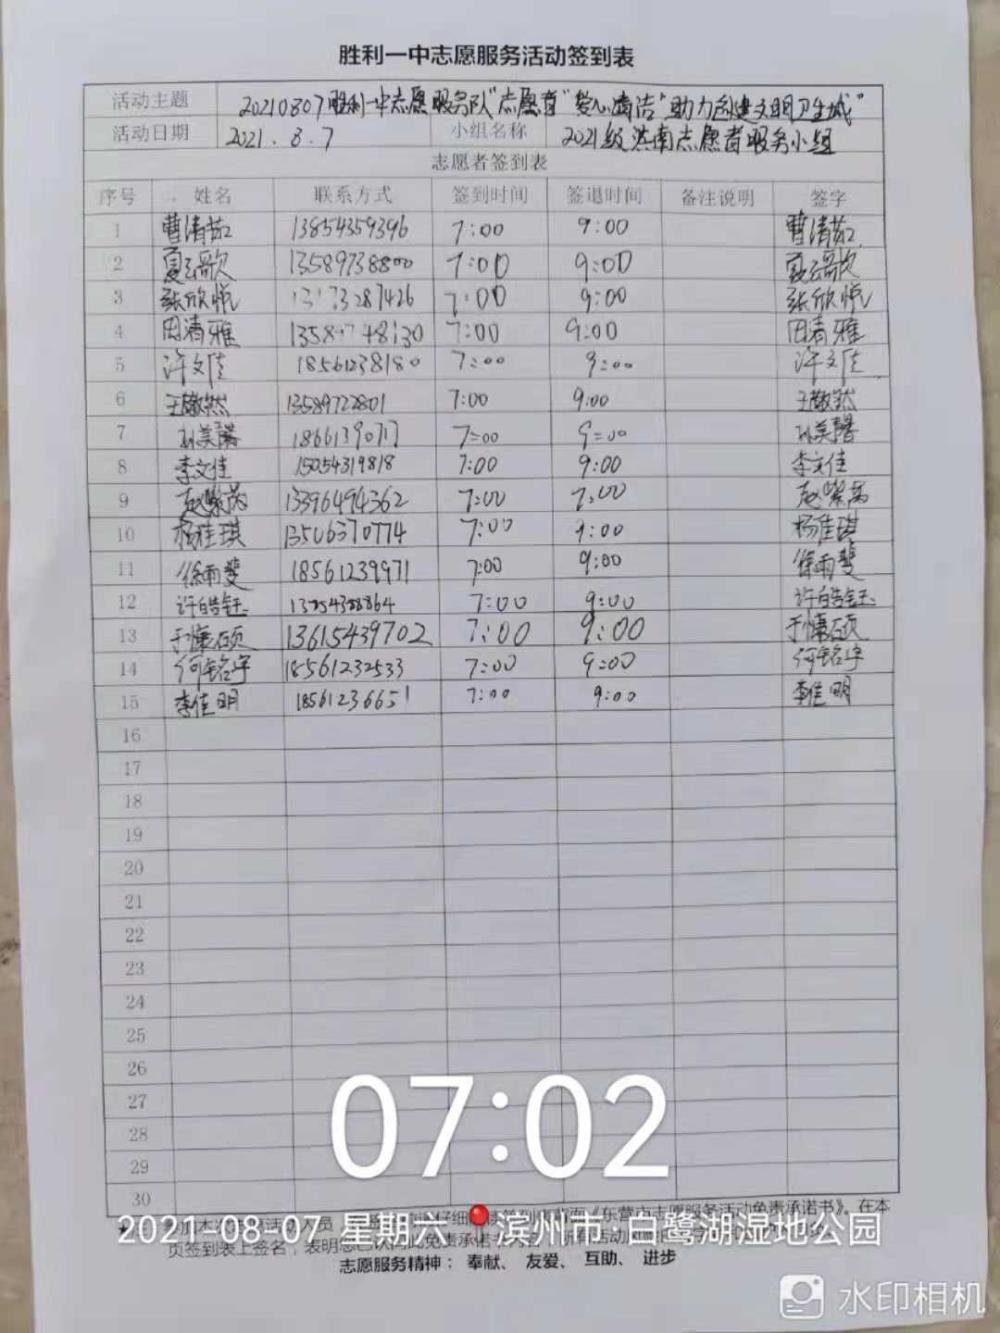 胜利一中志愿服务活动签到表
活动主题 20210807胜利一中志愿服务队"志愿者"爱心清洁"助力创建文明卫生城"
活动日期 2021.8.7 小组名称 2021级济南志愿者服务小组
志愿者签到表
序号 姓名 联系方式 签到时间 签退时间 备注说明 签字
1 曹清茹 13854359396 7:00 9:00 曹清茹
2 夏 歌 13589738800 7:00 9:00 夏 歌
3 张欣悦 7:00 9:00 张欣悦
4 田清雅 7:00 9:00 田清雅
5 许文佳 18561238180 7:00 9:00 许文佳
6 王敬然 13589722801 7:00 9:00 王敬然
7 孙美馨 7:00 9:00 孙美馨
8 李文佳 15054319818 7:00 9:00 李文佳
9 赵紫芮 13396494362 7:00 赵紫芮
10 杨佳琪 13506370774 7:00 9:00 杨佳琪
11 徐雨斐 18561239971 7:00 9:00 徐雨斐
12 许皓钰 7:00 9:00 许皓钰
13 于慷硕 13615439702 7:00 9:00 于慷硕
14 何铭宇 18561232533 7:00 9:00 何铭宇
15 李佳明 18561236651 7:00 9:00 李佳明
16
17
18
19
20
21
22
23
24
25
26
27
28
29
30
07:02
《东营市志愿服务活动免责承诺书》。在本
2021-08-07 星期六 滨州市·白鹭湖湿地公园
页签到表上签名，表明您已认同此免责承诺书
志愿服务精神： 奉献、 友爱、 互助、 进步
水印相机